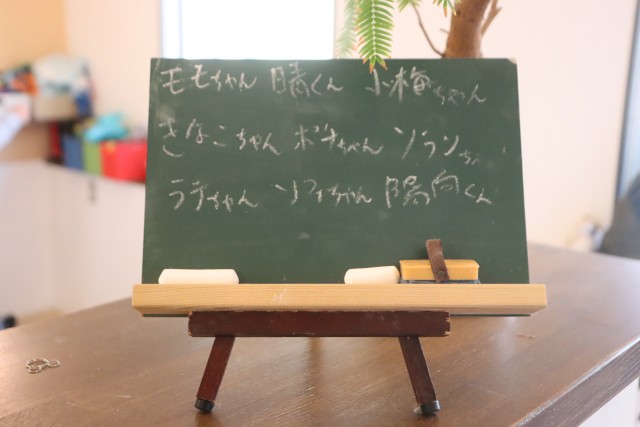 モモちゃん 晴くん 小梅ちゃん
きなこちゃん ボナちゃん ソラン
ララちゃん ソフィちゃん 陽向くん